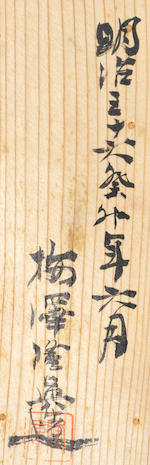 明治三十六癸卯年六月
梅澤隆真造